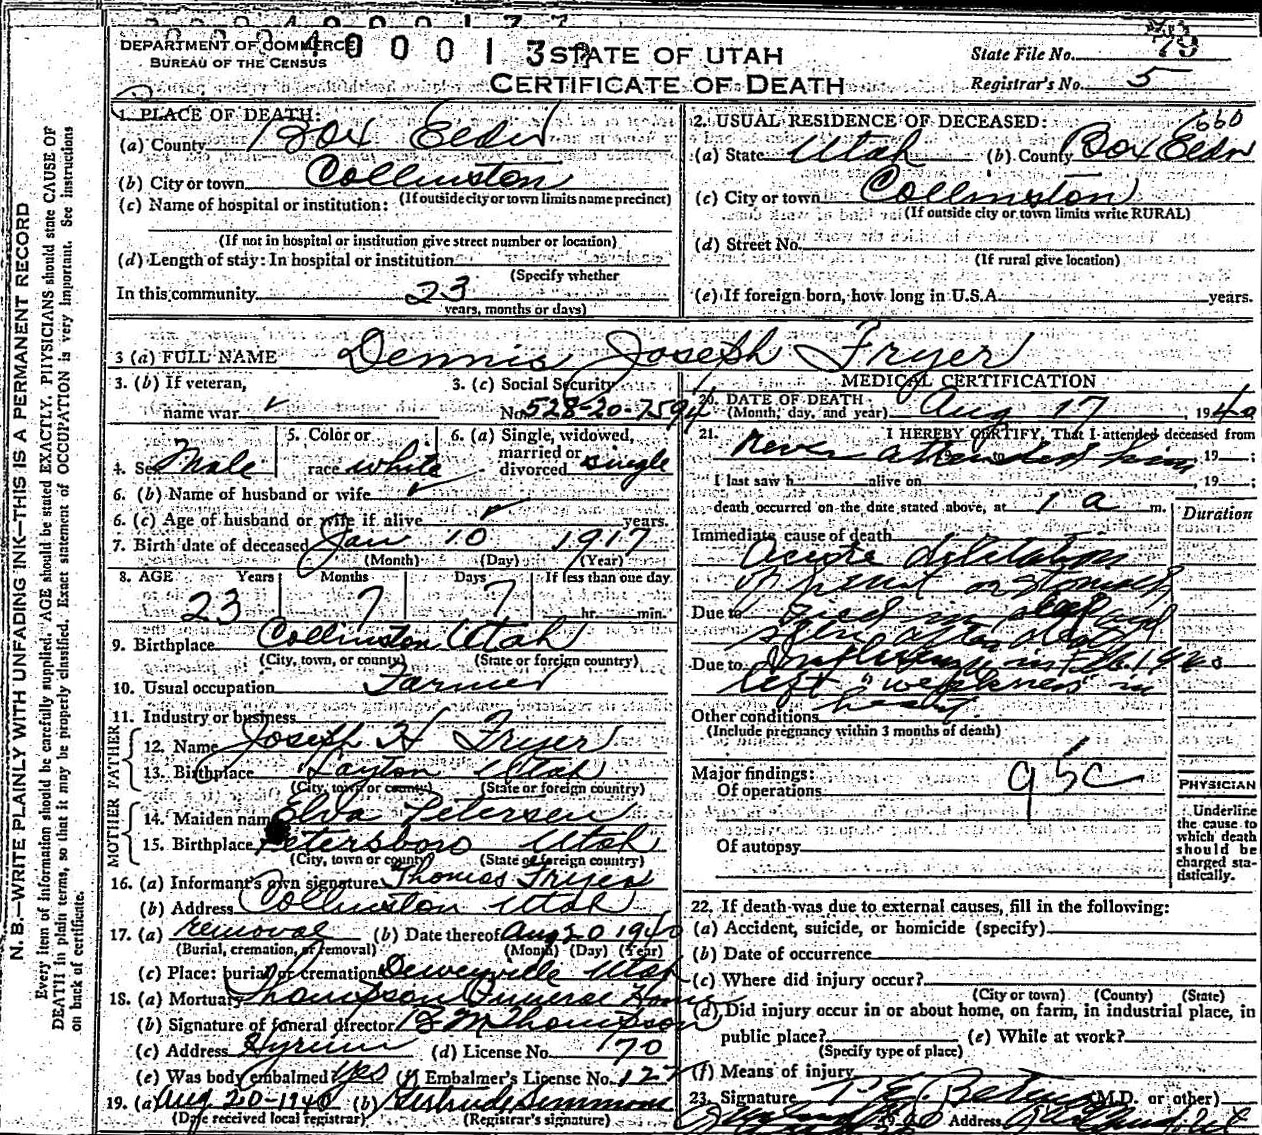 DEPARTMENT OF COMMERCE
BUREAU OF THE CENSUS
STATE OF UTAH
CERTIFICATE OF DEATH
State File No. 79
Registrar's No. 5
N. B.—WRITE PLAINLY WITH UNFADING INK—THIS IS A PERMANENT RECORD
Every item of information should be carefully supplied. AGE should be stated EXACTLY. PHYSICIANS should state CAUSE OF
DEATH in plain terms, so that it may be properly classified. Exact statement of OCCUPATION is very important. See instructions
on back of certificate.
1. PLACE OF DEATH:
(a) County Box Elder
(b) City or town Collinston
(If outside city or town limits name precinct)
(c) Name of hospital or institution:
(If not in hospital or institution give street number or location)
(d) Length of stay: In hospital or institution
(Specify whether
In this community 23
years, months or days)
2. USUAL RESIDENCE OF DECEASED:
(a) State Utah (b) County Box Elder
(c) City or town Collinston
(If outside city or town limits write RURAL)
(d) Street No.
(If rural give location)
(e) If foreign born, how long in U.S.A. years.
3 (a) FULL NAME Dennis Joseph Fryer
3. (b) If veteran,
name war
3. (c) Social Security
No. 528-20-7594
4. Sex Male
5. Color or
race white
6. (a) Single, widowed,
married or
divorced single
6. (b) Name of husband or wife
6. (c) Age of husband or wife if alive years.
7. Birth date of deceased Jan 10 1917
(Month) (Day) (Year)
8. AGE Years Months Days If less than one day
23 7 7 hr. min.
9. Birthplace Collinston Utah
(City, town, or county) (State or foreign country)
10. Usual occupation Farmer
11. Industry or business
FATHER
12. Name Joseph H Fryer
13. Birthplace Layton Utah
(City, town or county) (State or foreign country)
MOTHER
14. Maiden name Elva Petersen
15. Birthplace Petersboro Utah
(City, town or county) (State or foreign country)
16. (a) Informant's own signature Thomas Fryer
(b) Address Collinston Utah
17. (a) removal (b) Date thereof Aug 20 1940
(Burial, cremation, or removal) (Month) (Day) (Year)
(c) Place: burial or cremation Deweyville Utah
18. (a) Mortuary Thompson Funeral Home
(b) Signature of funeral director B M Thompson
(c) Address Hyrum (d) License No. 170
(e) Was body embalmed? Yes (f) Embalmer's License No. 127
19. (a) Aug 20-1940 (b) Gertrude Simmons
(Date received local registrar) (Registrar's signature)
MEDICAL CERTIFICATION
20. DATE OF DEATH
(Month, day, and year) Aug 17, 1940
21. I HEREBY CERTIFY, That I attended deceased from
never attended him, 19 ;
I last saw h alive on , 19 ;
death occurred on the date stated above, at 1 a m.
Duration
Immediate cause of death
Acute dilitation
of heart or stomach
Due to died in sleep and
seen after death
Due to Influenza in Feb. 1940
left "weakness" in
heart.
Other conditions
(Include pregnancy within 3 months of death)
Major findings:
Of operations 95c
Of autopsy
PHYSICIAN
Underline
the cause to
which death
should be
charged sta-
tistically.
22. If death was due to external causes, fill in the following:
(a) Accident, suicide, or homicide (specify)
(b) Date of occurrence
(c) Where did injury occur?
(City or town) (County) (State)
(d) Did injury occur in or about home, on farm, in industrial place, in
public place? (e) While at work?
(Specify type of place)
(f) Means of injury
23. Signature (M.D. or other)
Address